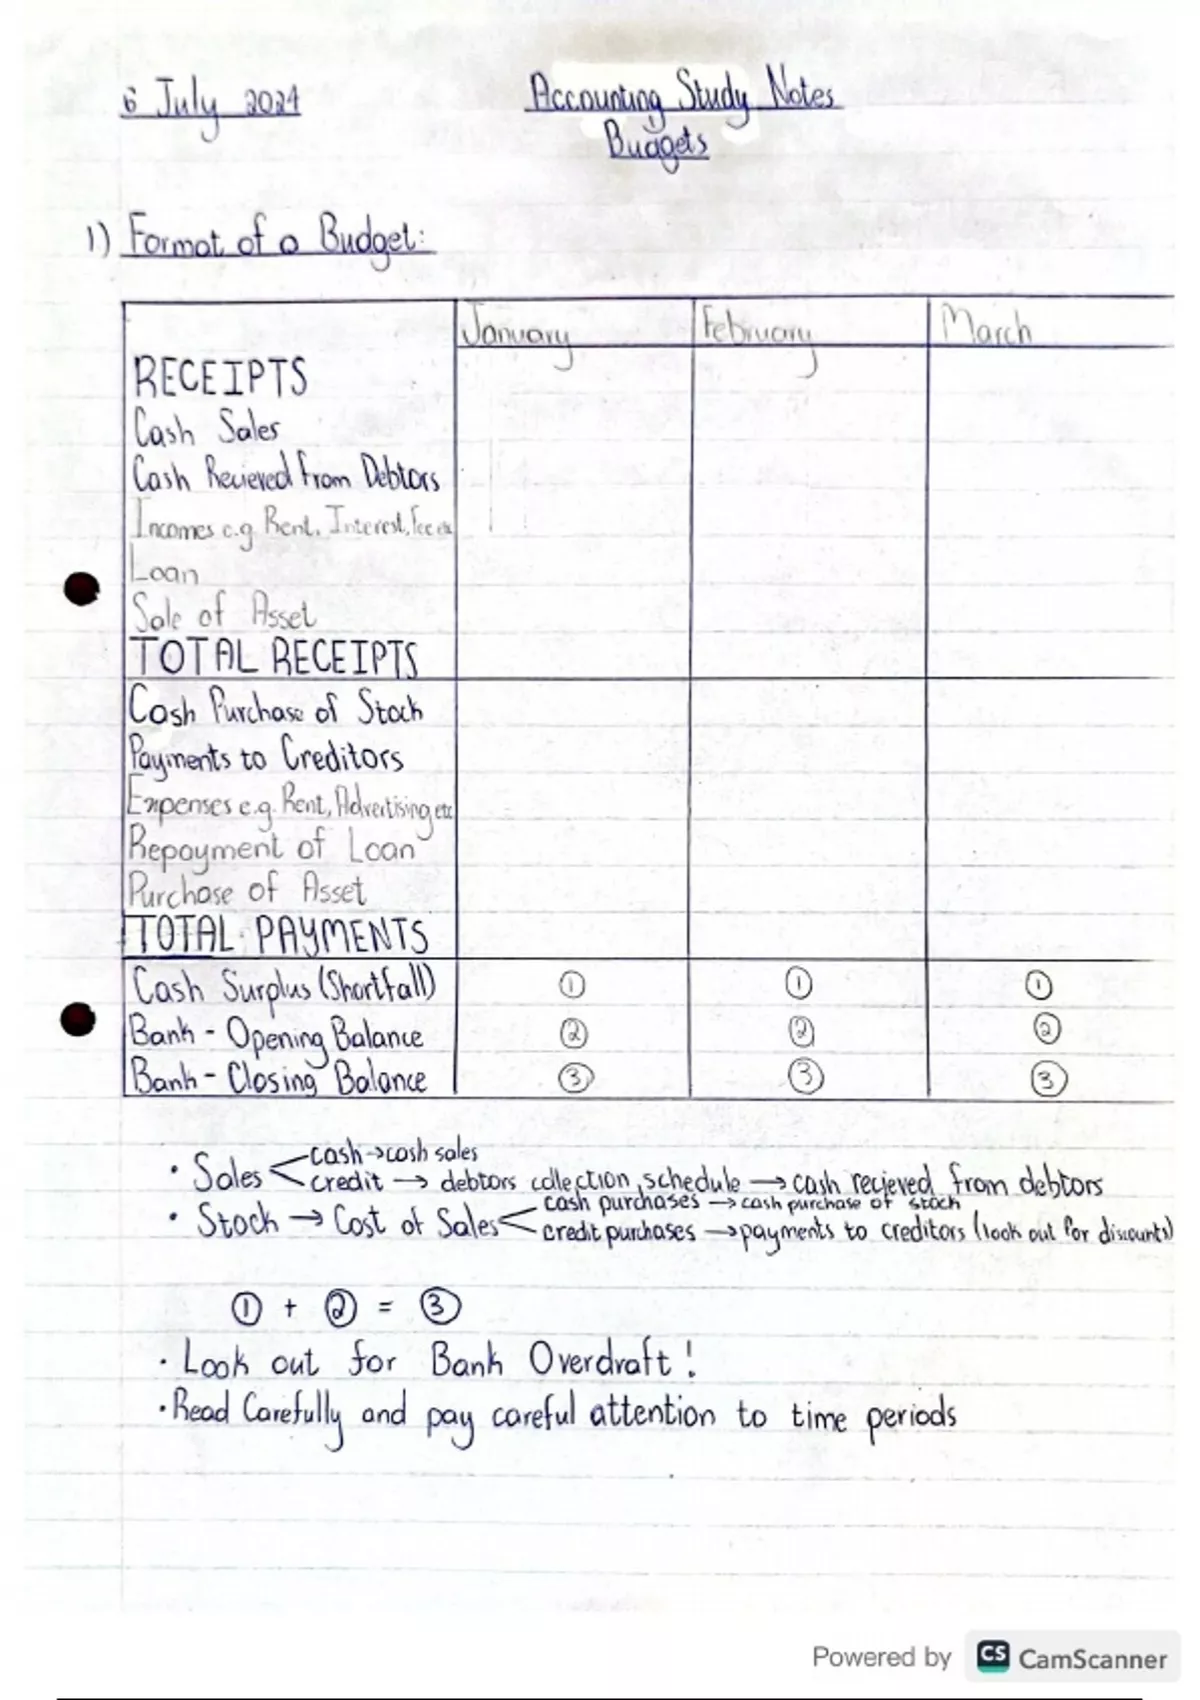 6 July 2024
Accounting Study Notes
Budgets
1) Format of a Budget:
January February March
RECEIPTS
Cash Sales
Cash Recieved from Debtors
Incomes e.g. Rent, Interest, Fee etc
Loan
Sale of Asset
TOTAL RECEIPTS
Cash Purchase of Stock
Payments to Creditors
Expenses e.g. Rent, Advertising etc
Repayment of Loan
Purchase of Asset
TOTAL PAYMENTS
Cash Surplus (Shortfall) ① ① ①
Bank - Opening Balance ② ② ②
Bank - Closing Balance ③ ③ ③
• Sales < cash → cash sales
credit → debtors collection schedule → cash recieved from debtors
• Stock → Cost of Sales < cash purchases → cash purchase of stock
credit purchases → payments to creditors (look out for discounts)
① + ② = ③
• Look out for Bank Overdraft!
• Read Carefully and pay careful attention to time periods
Powered by CS CamScanner